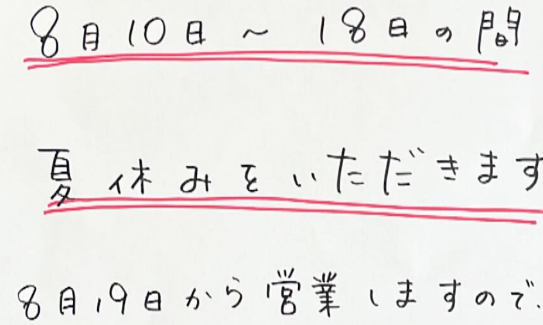 8月10日～18日の間
夏休みをいただきます
8月19日から営業しますので、